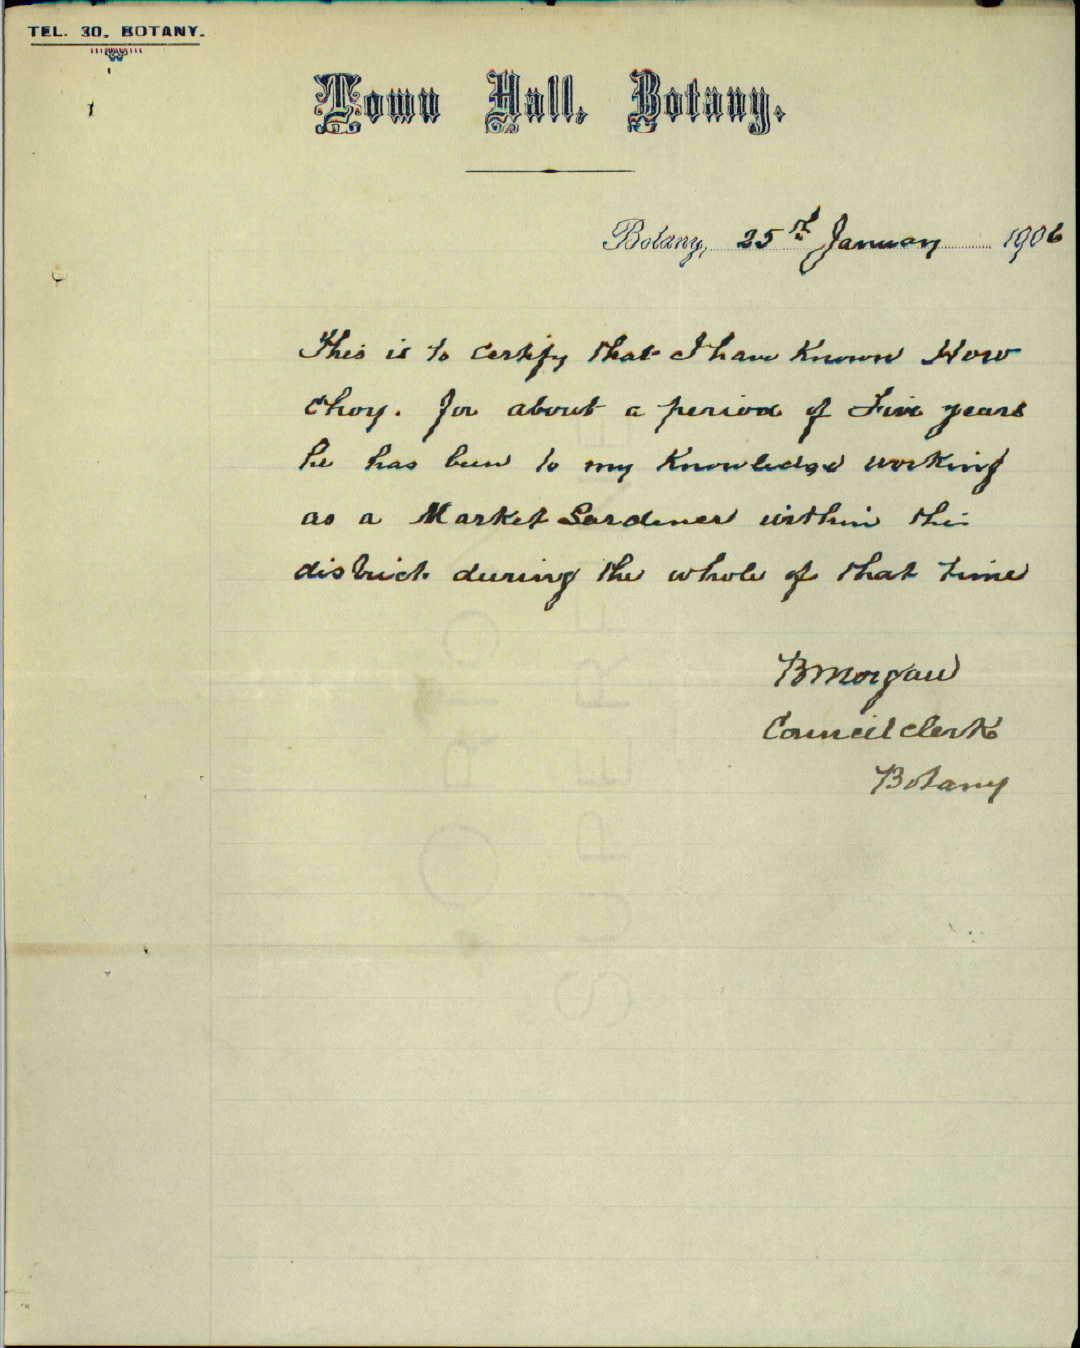 TEL. 30. BOTANY.
Town Hall, Botany.
Botany, 25th January 1906
This is to certify that I have Known How
Choy. for about a period of Five years
he has been to my Knowledge working
as a Market Gardener within this
district during the whole of that time
B Morgan
Council Clerk
Botany
SUPERFINE